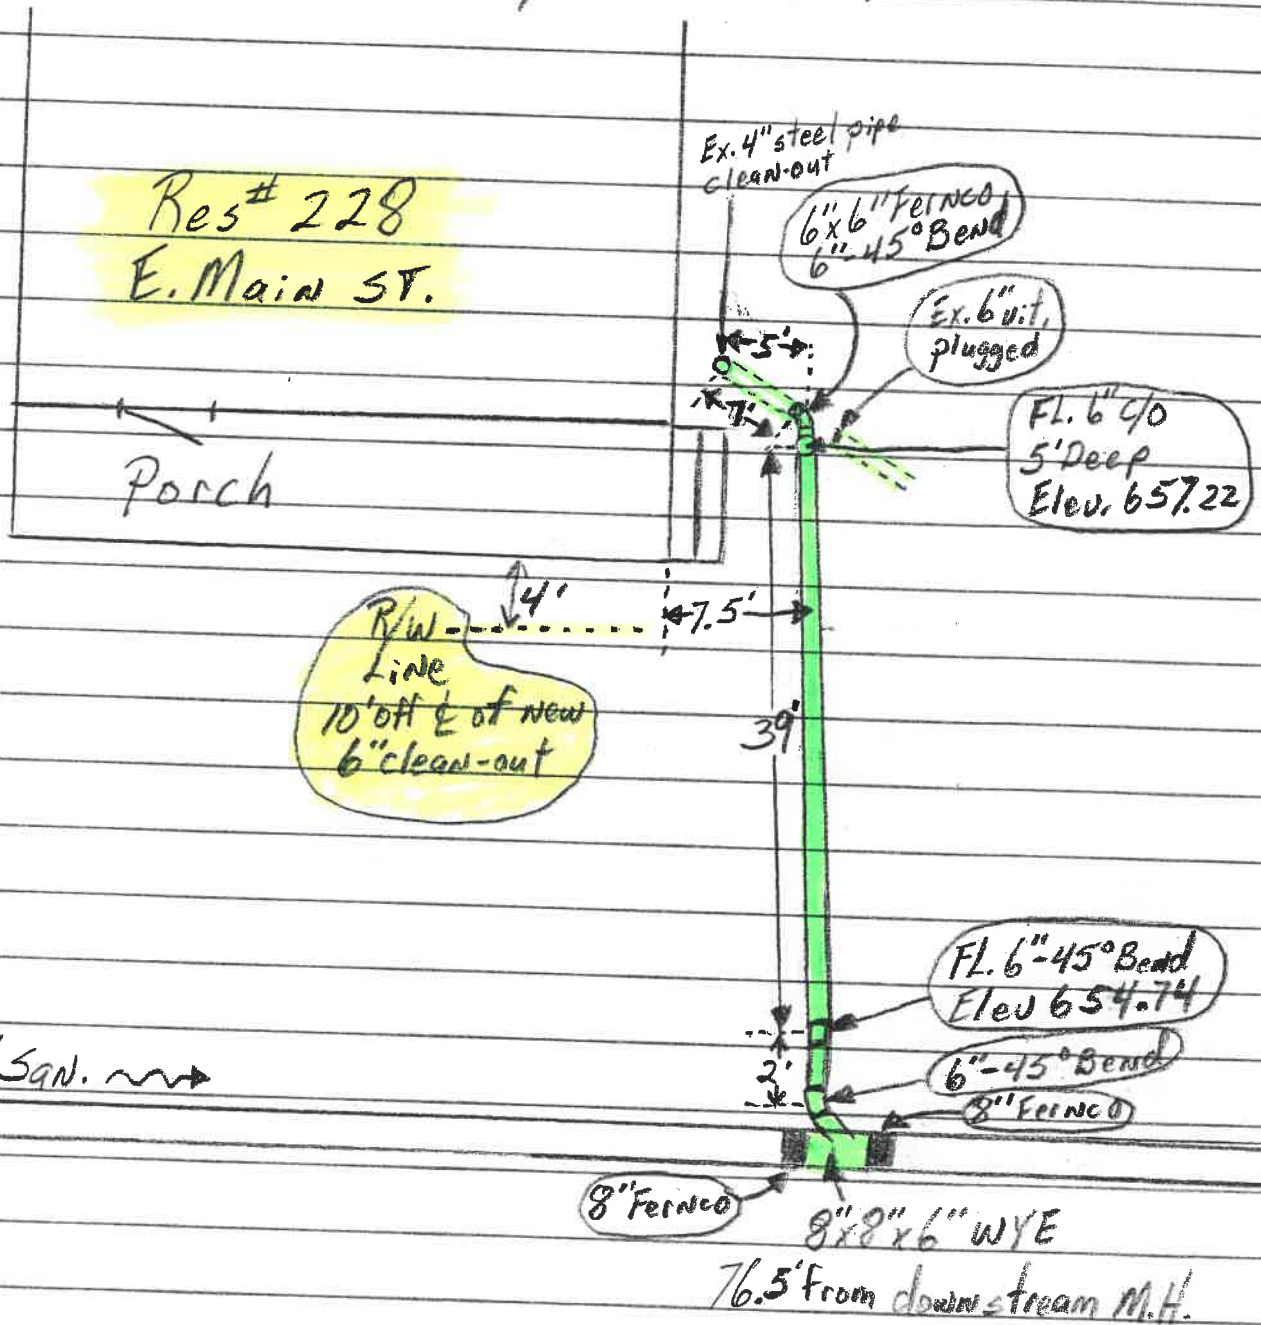 Res# 228
E. Main ST.
Ex. 4" steel pipe
clean-out
6"x6" Fernco
6"-45° Bend
5'
Ex. 6" vit.
plugged
7'
FL. 6" C/O
5' Deep
Elev. 657.22
Porch
4'
R/W
Line
10' off ℄ of New
6" clean-out
7.5'
39'
FL. 6"-45° Bend
Elev 654.74
San.
2'
6"-45° Bend
8" Fernco
8" Fernco
8"x8"x6" WYE
76.5' From downstream M.H.